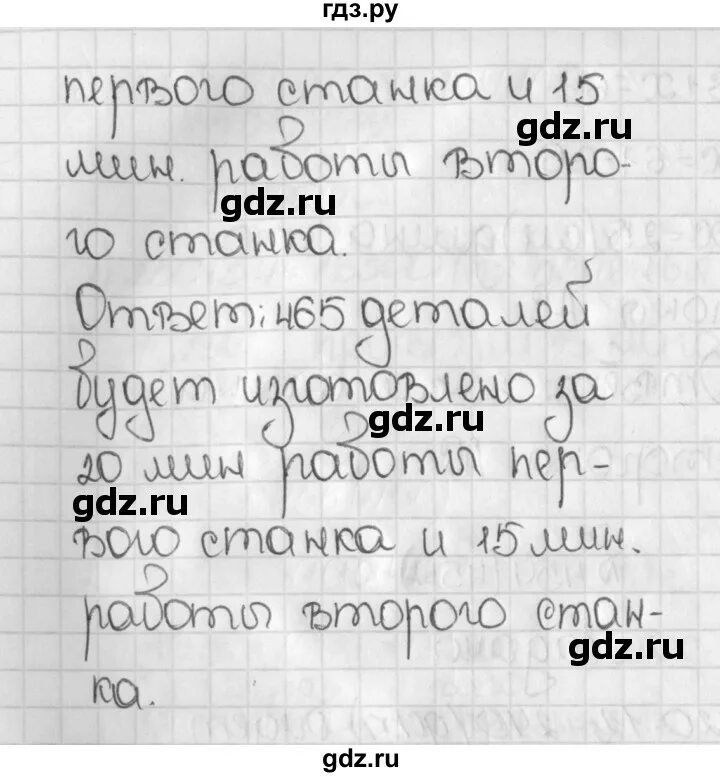 гдз.ру
первого станка и 15
gdz.ru
мин. работы второ-
gdz.ru
го станка.
Ответ: 465 деталей
будет изготовлено за
gdz.ru
20 мин работы пер-
gdz.ru
вого станка и 15 мин.
работы второго стан-
gdz.ru
ка.
gdz.ru